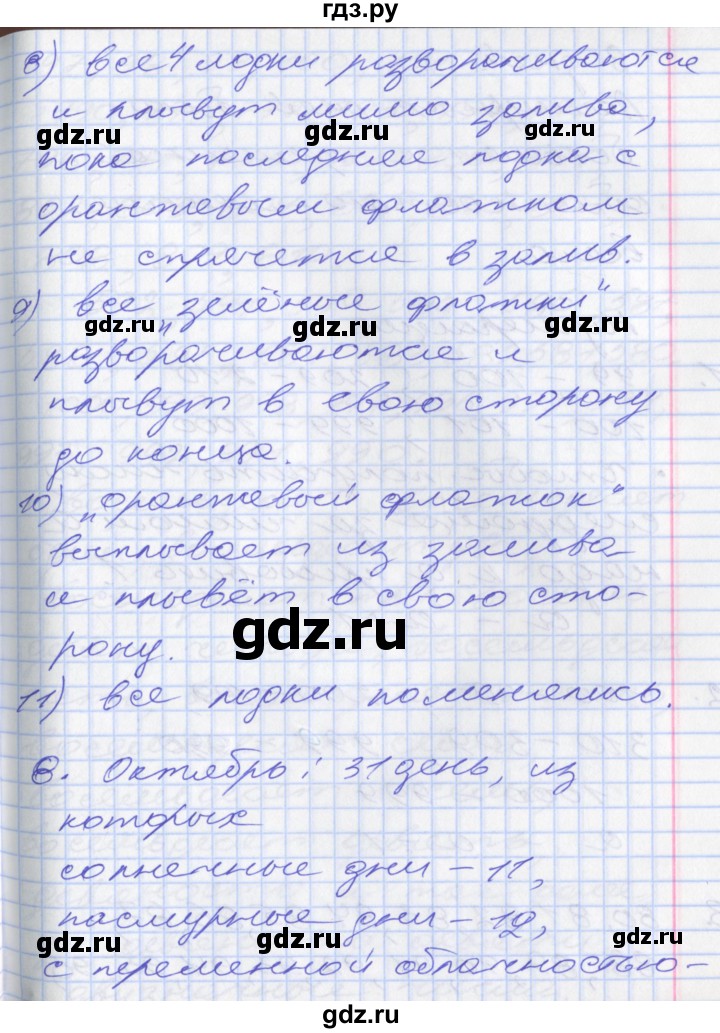 гдз.ру
8) все 4 лодки разворачиваются
и плывут мимо залива,
gdz.ru gdz.ru gdz.ru
пока последняя лодка с
оранжевым флажком
не спрячется в залив.
9) все „зелёные флажки“
gdz.ru gdz.ru gdz.ru
разворачиваются и
плывут в свою сторону
до конца.
10) „оранжевый флажок“
выплывает из залива
и плывёт в свою сто-
gdz.ru
рону.
11) все лодки поменялись.
6. Октябрь: 31 день, из
которых
солнечные дни – 11,
пасмурные дни – 12,
gdz.ru gdz.ru gdz.ru
с переменной облачностью –